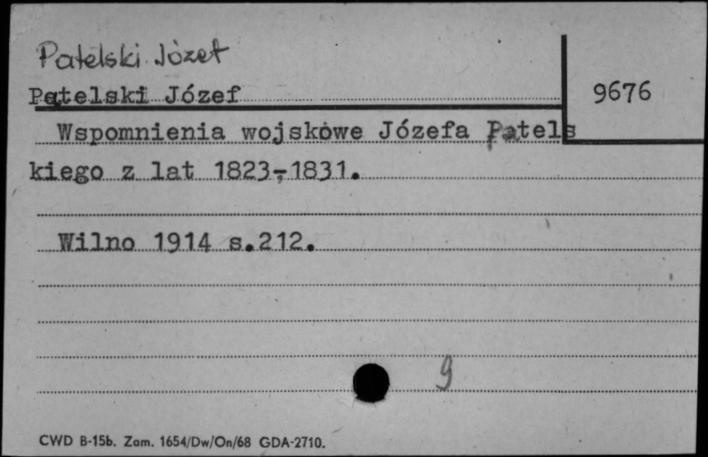 Patelski Józef
Patelski Józef
9676
Wspomnienia wojskowe Józefa Patels
kiego z lat 1823-1831.
Wilno 1914 s.212.
9
CWD B-15b. Zam. 1654/Dw/On/68 GDA-2710.